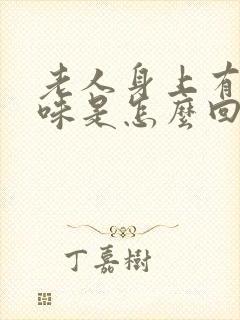 老人身上有
味是怎麼回
丁嘉樹